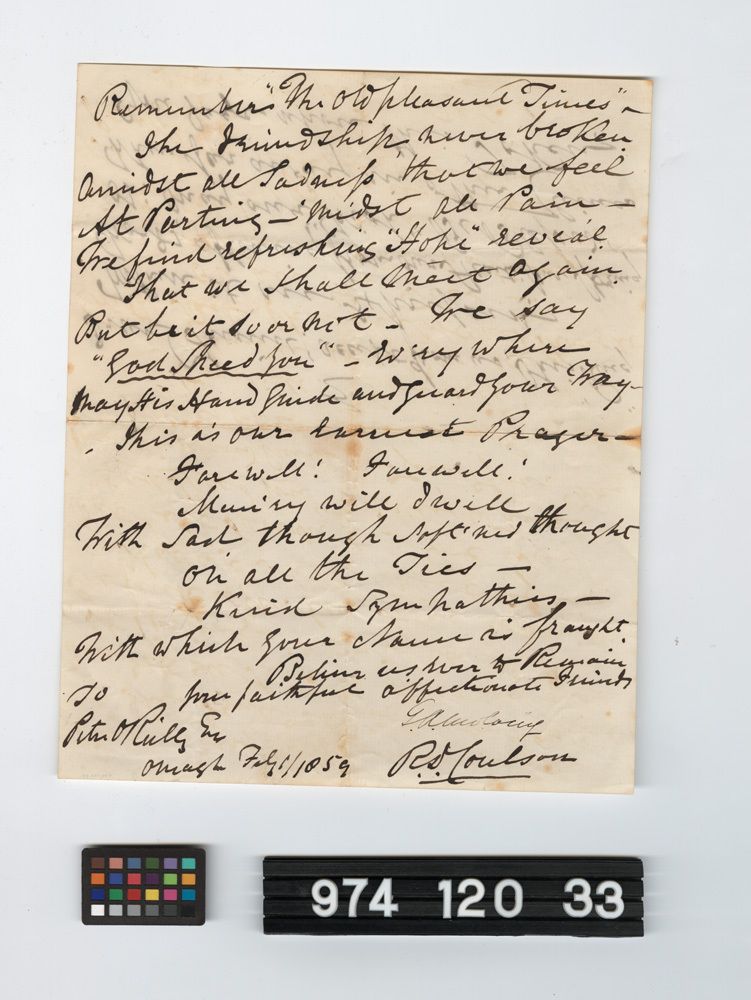 Remember "The Old pleasant Times" –
The Friendship never broken
Amidst all Sadness, that we feel
At Parting – 'midst all Pain –
We find refreshing "Hope" reveal
That we Shall meet again.
But be it so or not – We say
"God Speed You" – Ev'ry where
May His Hand Guide and Guard Your Way –
This is our Earnest Prayer –
Farewell! Farewell!
Mem'ry will dwell
With Sad though Soft'ned thought
on all the Ties –
Kind Sympathies –
With which your Name is fraught.
Believe us ever to Remain
To your faithful affectionate Friends
Peter O'Reilly Esq
R.D. Coulson
Omagh Feby 1/1859
974 120 33